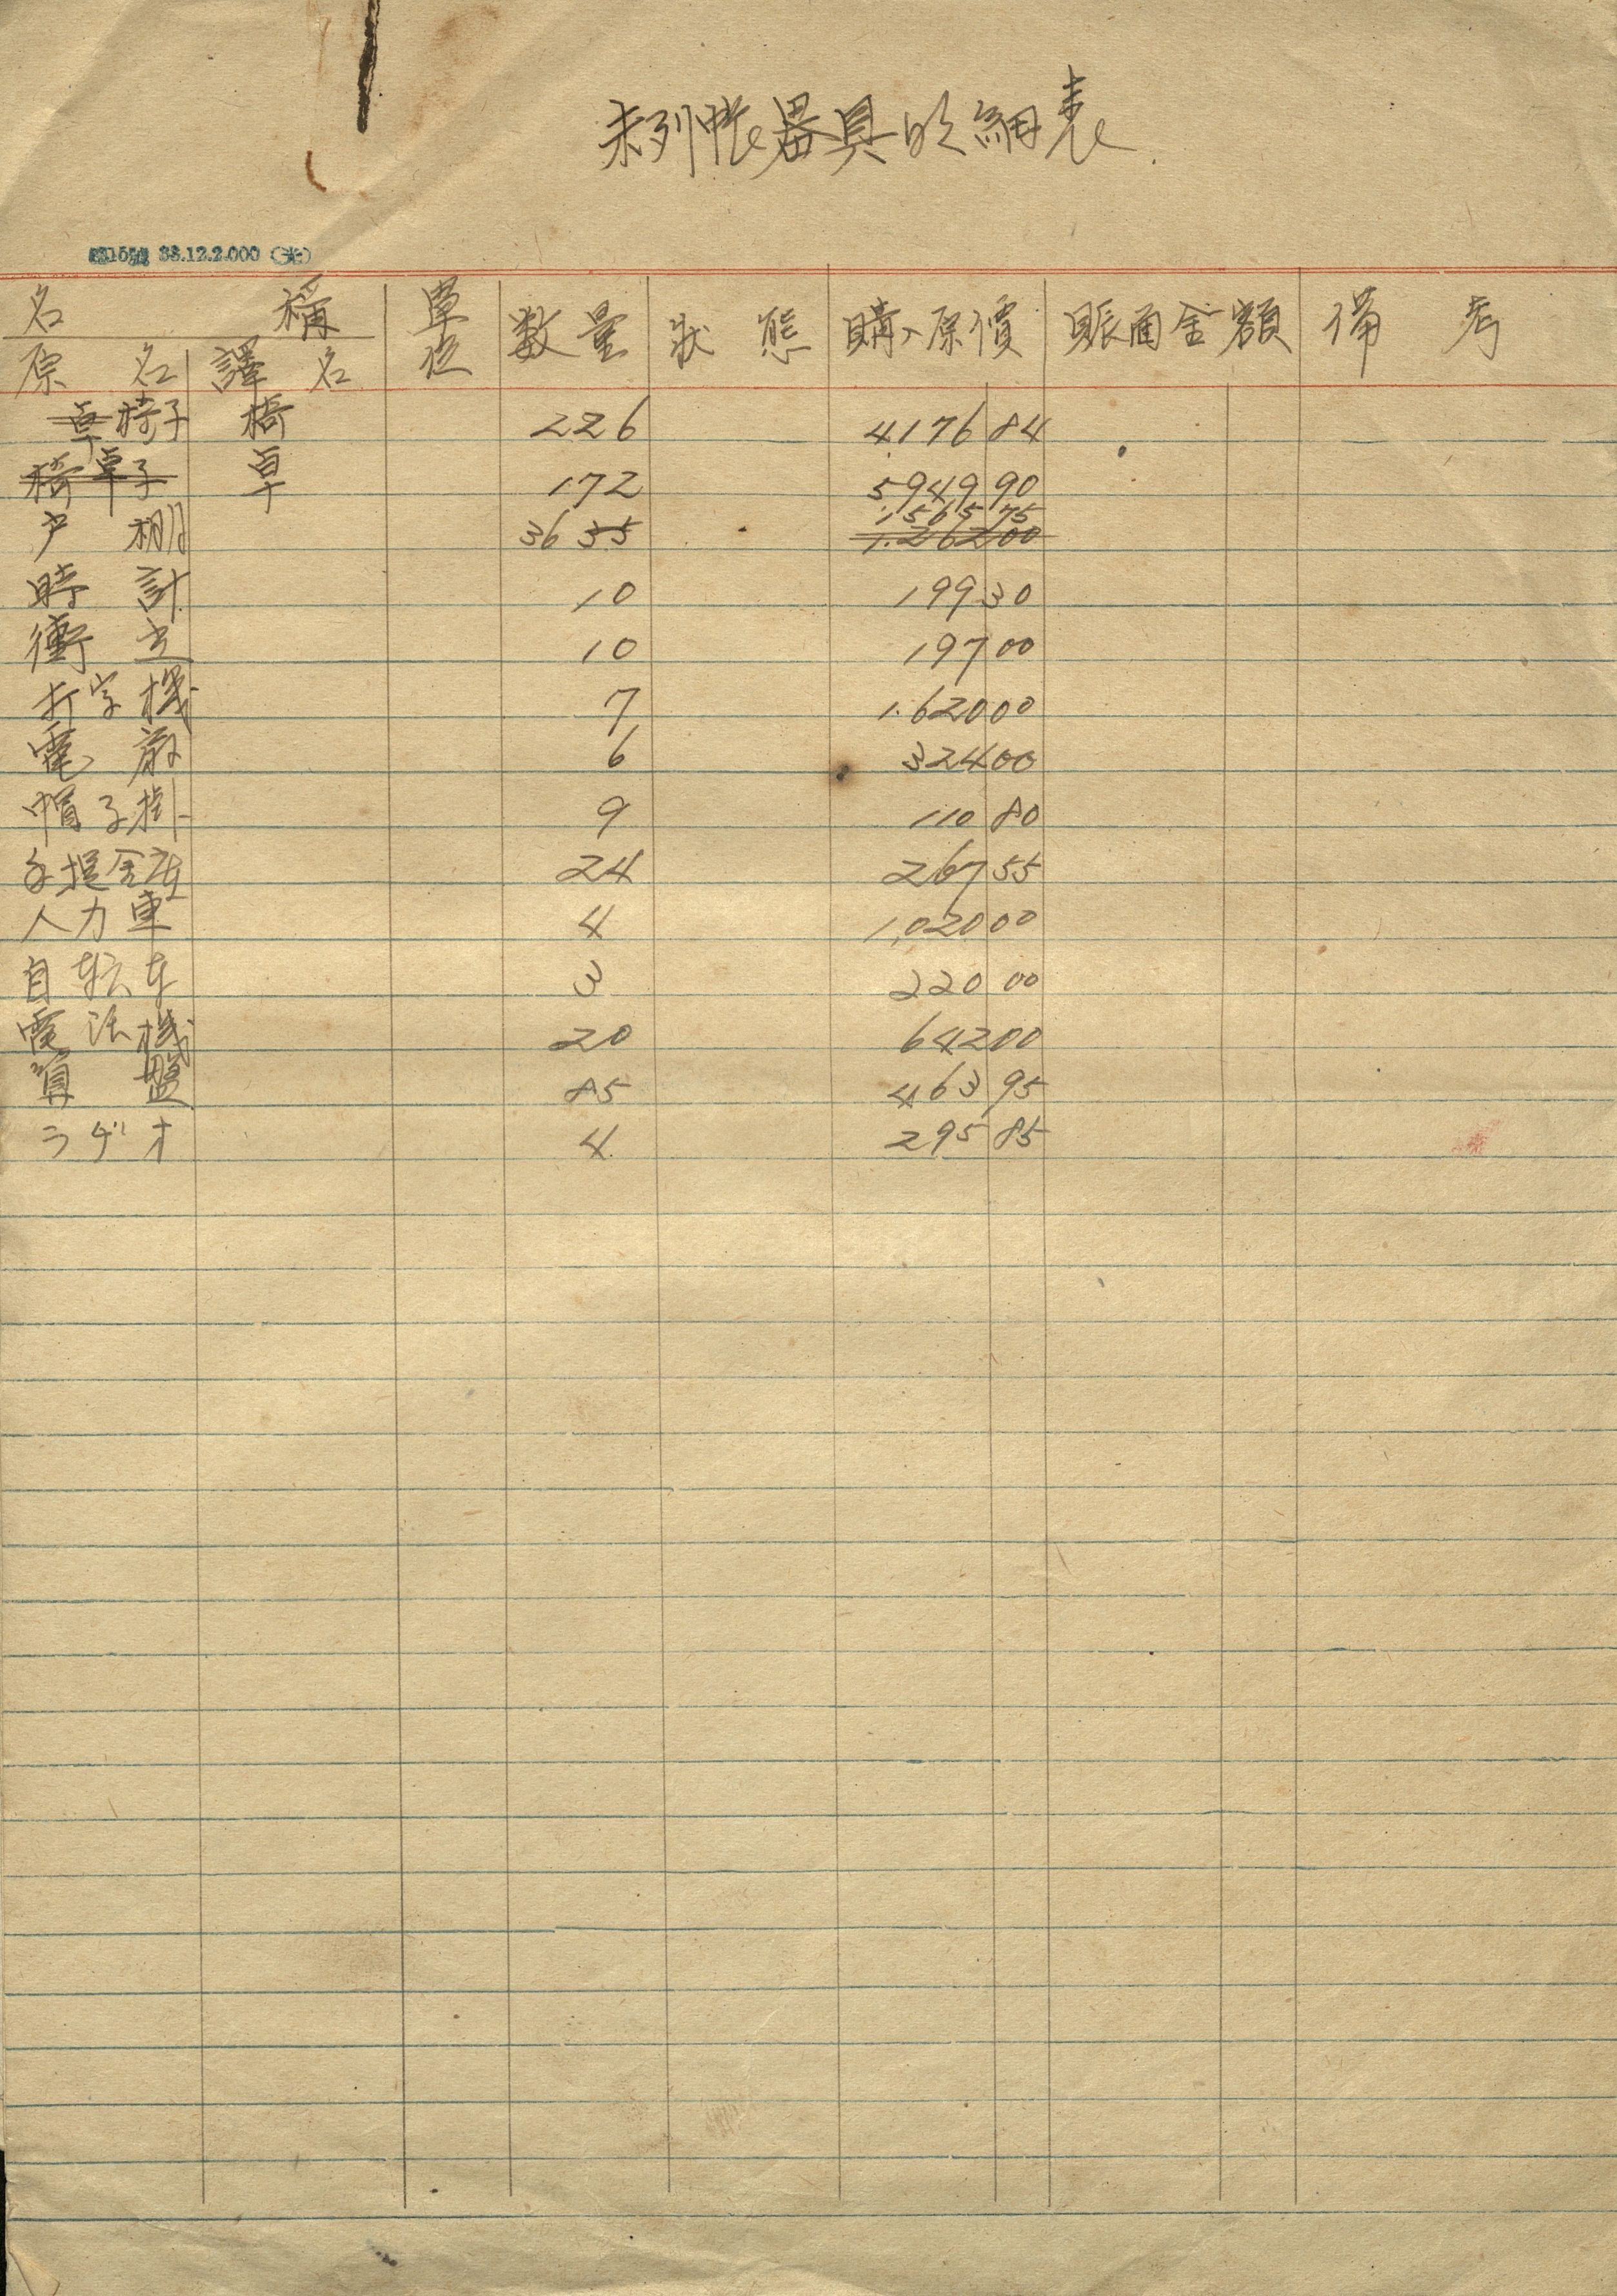 未列帐器具明細表
38.12.2.000
名稱 單位 数量 狀態 購入原價 賬面金額 備考
原名 譯名
卓椅子 椅 226 4,176 84
椅卓子 卓 172 5,949 90
1,565 75
戸棚 36 35 1,262 00
時計 10 199 30
衝立 10 197 00
打字機 7 1,620 00
電扇 6 324 00
帽子掛 9 110 80
手提金庫 24 267 55
人力車 4 1,020 00
自転车 3 220 00
電话機 20 642 00
算盤 85 463 95
ラヂオ 4 295 85